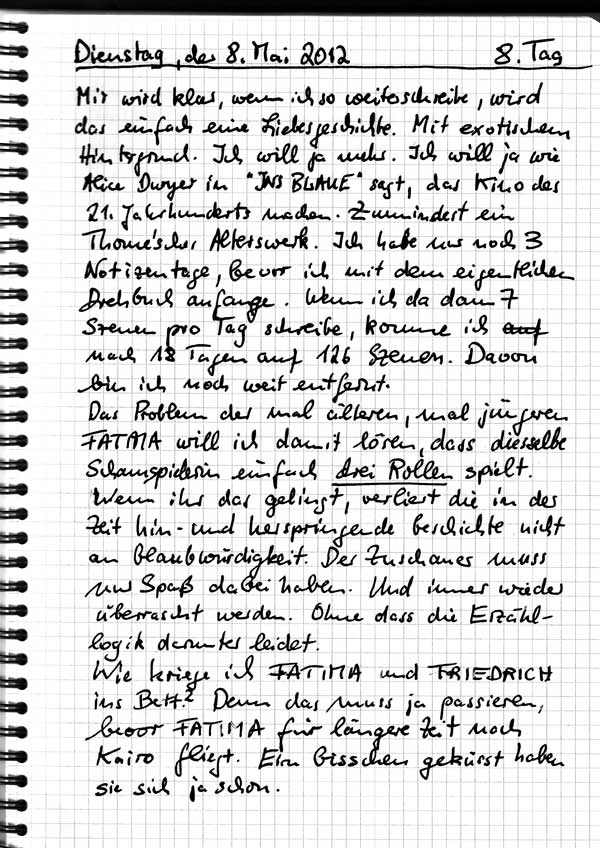 Dienstag, der 8. Mai 2012 8. Tag
Mir wird klar, wenn ich so weiterschreibe, wird
das einfach eine Liebesgeschichte. Mit exotischem
Hintergrund. Ich will ja mehr. Ich will ja wie
Alice Dwyer in "INS BLAUE" sagt, das Kino des
21. Jahrhunderts machen. Zumindest ein
Thome'scher Alterswerk. Ich habe nur noch 3
Notizentage, bevor ich mit dem eigentlichen
Drehbuch anfange. Wenn ich da dann 7
Szenen pro Tag schreibe, komme ich auf
nach 18 Tagen auf 126 Szenen. Davon
bin ich noch weit entfernt.
Das Problem der mal älteren, mal jüngeren
FATIMA will ich damit lösen, dass diesselbe
Schauspielerin einfach drei Rollen spielt.
Wenn ihr das gelingt, verliert die in der
Zeit hin- und herspringende Geschichte nicht
an Glaubwürdigkeit. Der Zuschauer muss
nur Spaß dabei haben. Und immer wieder
überrascht werden. Ohne dass die Erzähl-
logik darunter leidet.
Wie kriege ich FATIMA und FRIEDRICH
ins Bett? Denn das muss ja passieren,
bevor FATIMA für längere Zeit nach
Kairo fliegt. Ein bisschen geküsst haben
sie sich ja schon.